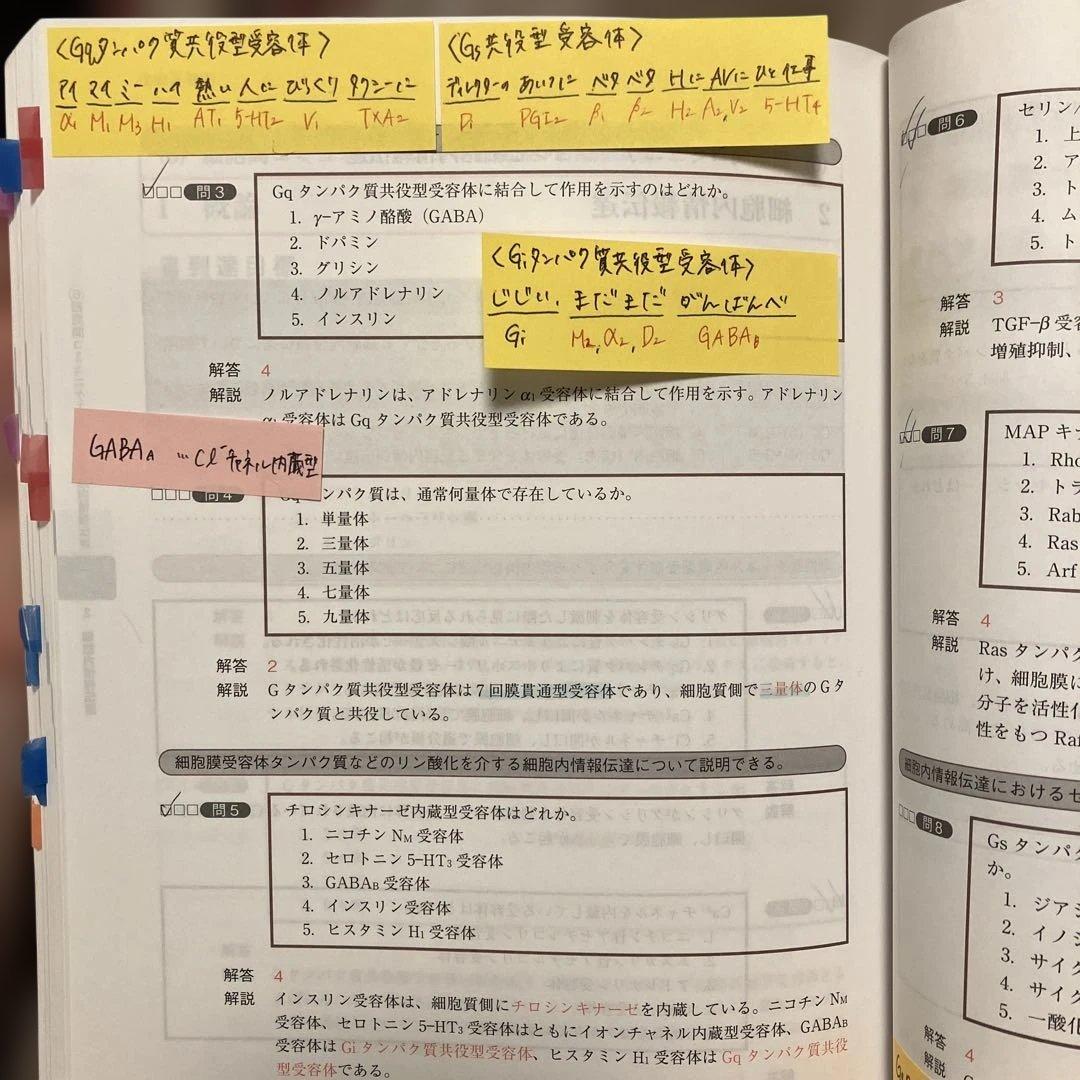 〈Gqタンパク質共役型受容体〉
アイ マイ ミー ハイ 熱い 人に びっくり タクシーに
α₁ M₁ M₃ H₁ AT₁ 5-HT₂ V₁ TXA₂
〈Gs共役型受容体〉
ディレクターの あいつに ベタ ベタ Hに AVに ひと仕事
D₁ PGI₂ β₁ β₂ H₂ A₂,V₂ 5-HT₄
問3
Gq タンパク質共役型受容体に結合して作用を示すのはどれか。
1. γ-アミノ酪酸（GABA）
2. ドパミン
3. グリシン
4. ノルアドレナリン
5. インスリン
〈Giタンパク質共役型受容体〉
じじい, まだまだ がんばんべ
Gi M₂,α₂,D₂ GABA_B
解答 4
解説 ノルアドレナリンは、アドレナリン α₁ 受容体に結合して作用を示す。アドレナリン
α₁ 受容体は Gq タンパク質共役型受容体である。
GABA_A …Cl⁻チャネル内蔵型
問4
Gq タンパク質は、通常何量体で存在しているか。
1. 単量体
2. 三量体
3. 五量体
4. 七量体
5. 九量体
解答 2
解説 G タンパク質共役型受容体は 7 回膜貫通型受容体であり、細胞質側で三量体の G タ
ンパク質と共役している。
細胞膜受容体タンパク質などのリン酸化を介する細胞内情報伝達について説明できる。
問5
チロシンキナーゼ内蔵型受容体はどれか。
1. ニコチン N_M 受容体
2. セロトニン 5-HT₃ 受容体
3. GABA_B 受容体
4. インスリン受容体
5. ヒスタミン H₁ 受容体
解答 4
解説 インスリン受容体は、細胞質側にチロシンキナーゼを内蔵している。ニコチン N_M
受容体、セロトニン 5-HT₃ 受容体はともにイオンチャネル内蔵型受容体、GABA_B
受容体は Gi タンパク質共役型受容体、ヒスタミン H₁ 受容体は Gq タンパク質共役
型受容体である。
問6
セリン/
1. 上
2. ア
3. ト
4. ム
5. ト
解答 3
解説 TGF-β 受容
増殖抑制、
問7
MAP キナ
1. Rho
2. トラ
3. Rab
4. Ras
5. Arf
解答 4
解説 Ras タンパク
け、細胞膜に
分子を活性化
性をもつ Raf
細胞内情報伝達におけるセ
問8
Gs タンパク
か。
1. ジアシ
2. イノシ
3. サイク
4. サイク
5. 一酸化
解答 4
解説